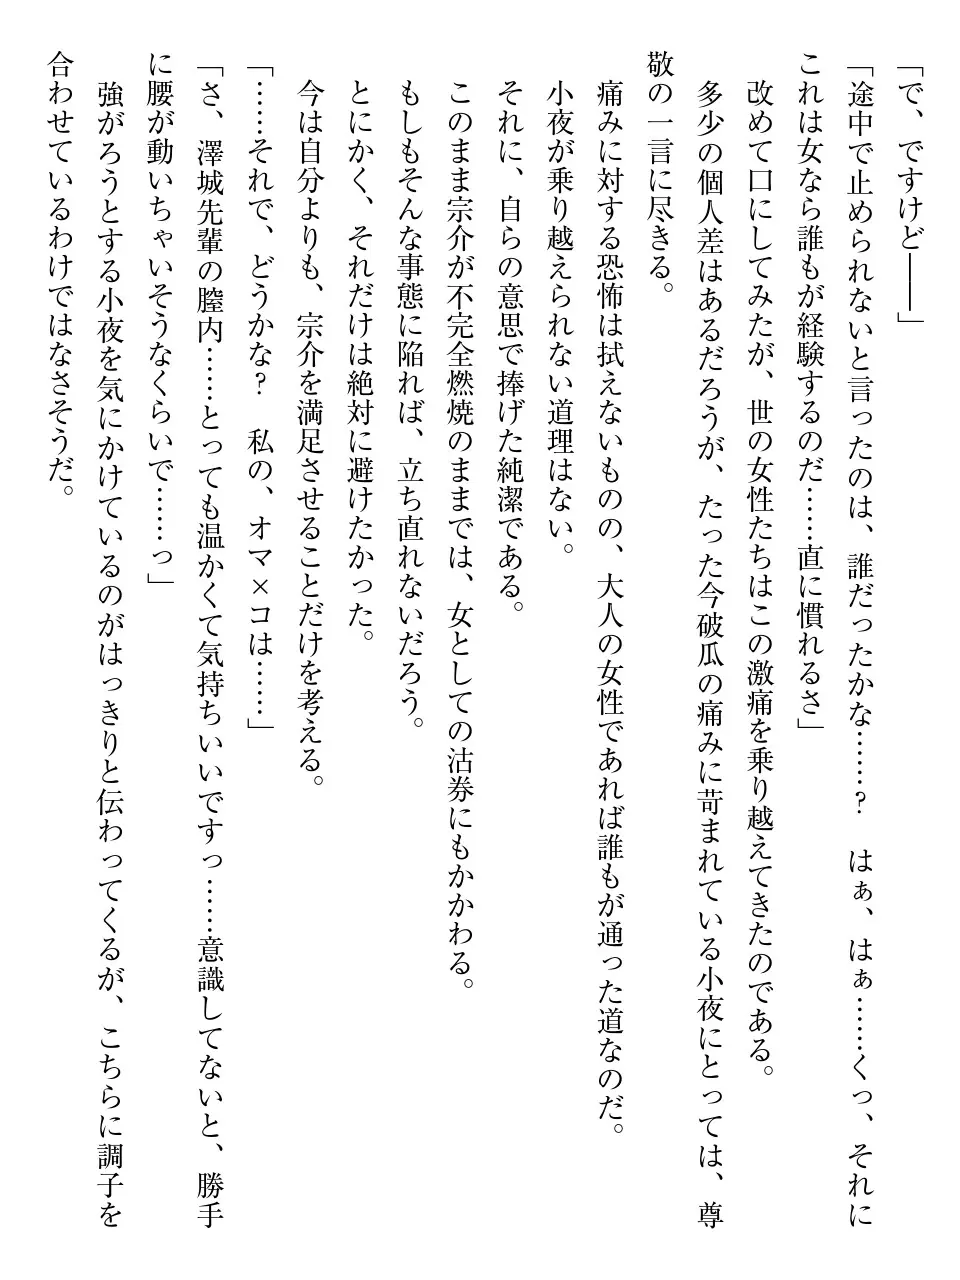 「で、ですけど――」
「途中で止められないと言ったのは、誰だったかな……？　はぁ、はぁ……くっ、それに
これは女なら誰もが経験するのだ……直に慣れるさ」
改めて口にしてみたが、世の女性たちはこの激痛を乗り越えてきたのである。
多少の個人差はあるだろうが、たった今破瓜の痛みに苛まれている小夜にとっては、尊
敬の一言に尽きる。
痛みに対する恐怖は拭えないものの、大人の女性であれば誰もが通った道なのだ。
小夜が乗り越えられない道理はない。
それに、自らの意思で捧げた純潔である。
このまま宗介が不完全燃焼のままでは、女としての沽券にもかかわる。
もしもそんな事態に陥れば、立ち直れないだろう。
とにかく、それだけは絶対に避けたかった。
今は自分よりも、宗介を満足させることだけを考える。
「……それで、どうかな？　私の、オマ×コは……」
「さ、澤城先輩の膣内……とっても温かくて気持ちいいですっ……意識してないと、勝手
に腰が動いちゃいそうなくらいで……っ」
強がろうとする小夜を気にかけているのがはっきりと伝わってくるが、こちらに調子を
合わせているわけではなさそうだ。